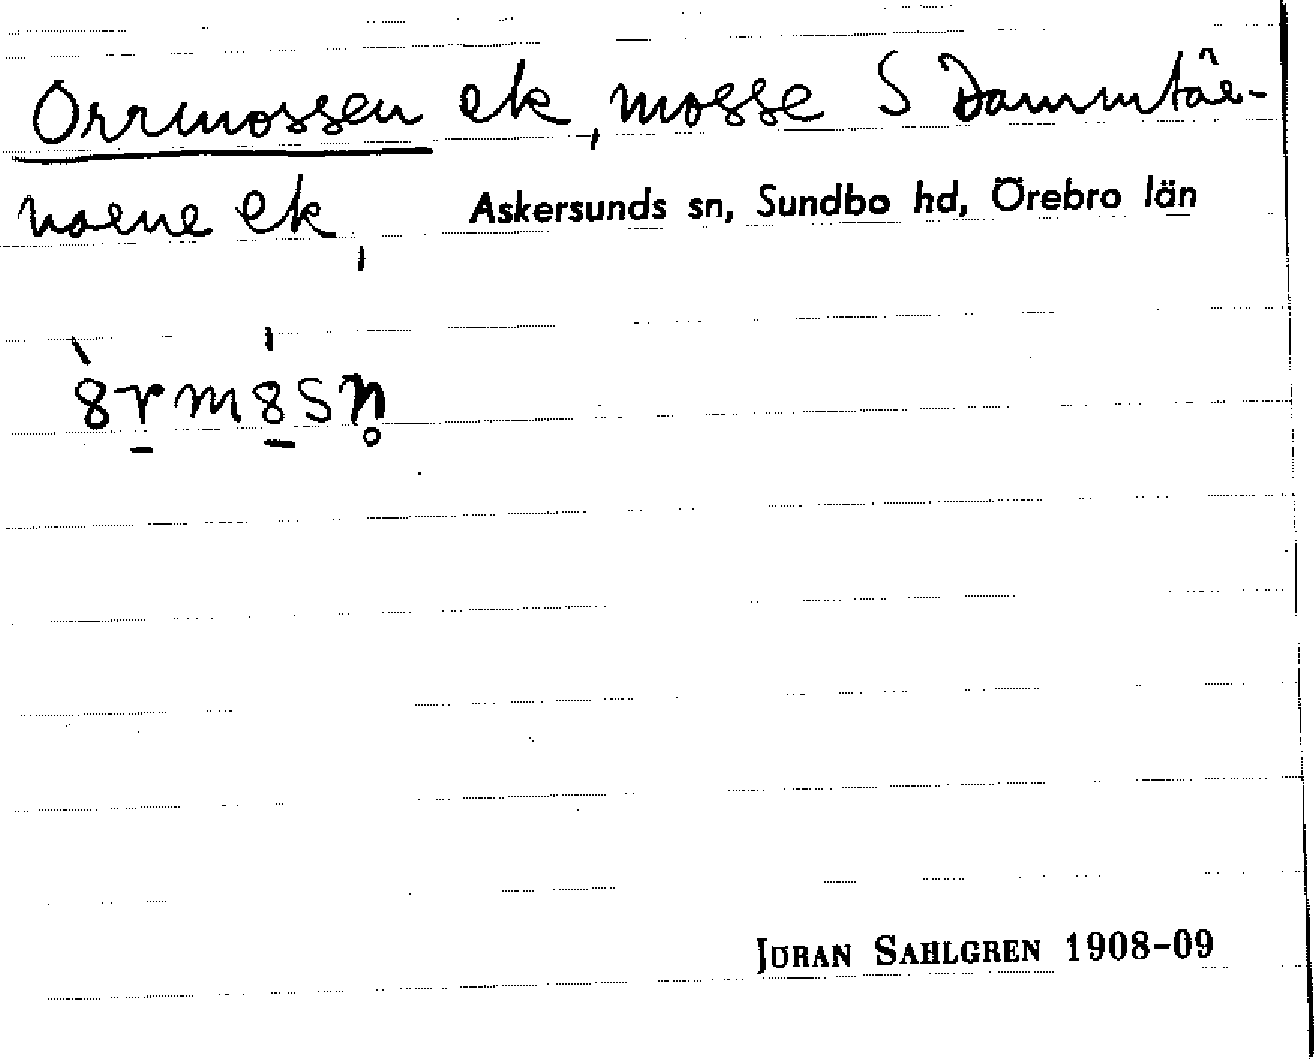 Orrmossen ek, mosse S Dammtäe-
noene ek, Askersunds sn, Sundbo hd, Örebro län
JÖRAN SAHLGREN 1908-09